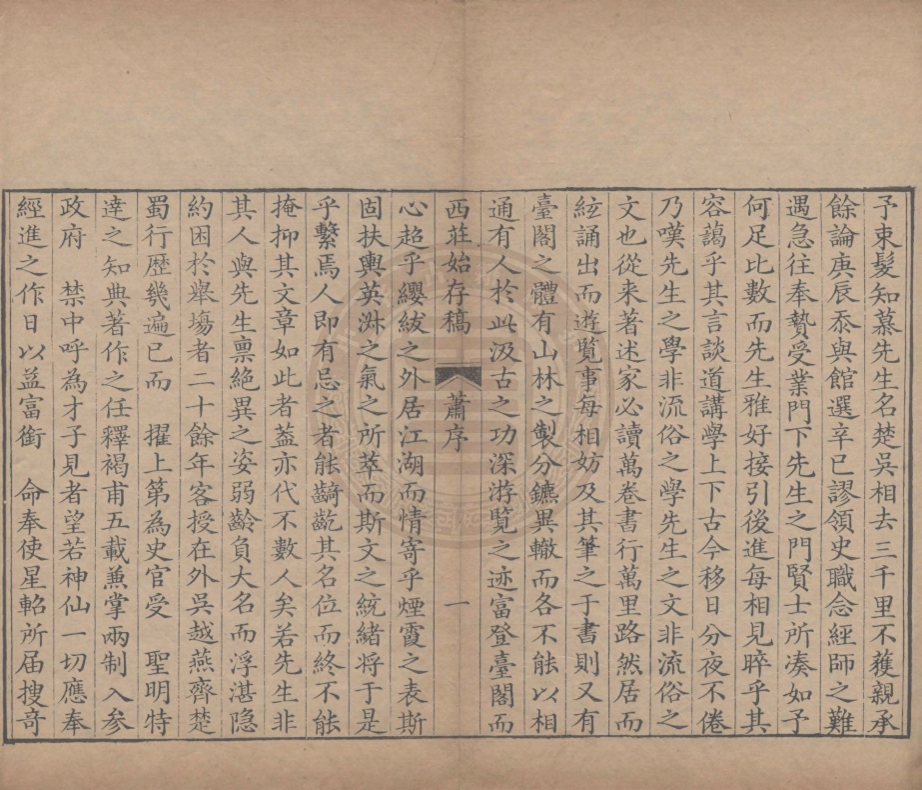 予束髮知慕先生名楚吳相去三千里不獲親承
餘論庚辰忝與館選辛巳謬領史職念經師之難
遇急往奉贄受業門下先生之門賢士所凑如予
何足比數而先生雅好接引後進每相見睟乎其
容藹乎其言談道講學上下古今移日分夜不倦
乃嘆先生之學非流俗之學先生之文非流俗之
文也從来著述家必讀萬卷書行萬里路然居而
絃誦出而遊覽事每相妨及其筆之于書則又有
臺閣之體有山林之製分鑣異轍而各不能以相
通有人於此汲古之功深游覽之迹富登臺閣而
西莊始存稿 蕭序 一
心超乎纓紱之外居江湖而情寄乎煙霞之表斯
固扶輿英淑之氣之所萃而斯文之統緒将于是
乎繫焉人即有忌之者能齮齕其名位而終不能
掩抑其文章如此者葢亦代不數人矣若先生非
其人與先生禀絶異之姿弱齡負大名而浮湛隐
約困於舉塲者二十餘年客授在外吳越燕齊楚
蜀行歴幾遍已而 擢上第為史官受 聖明特
達之知典著作之任釋褐甫五載兼掌兩制入參
政府 禁中呼為才子見者望若神仙一切應奉
經進之作日以益富銜 命奉使星軺所届搜奇